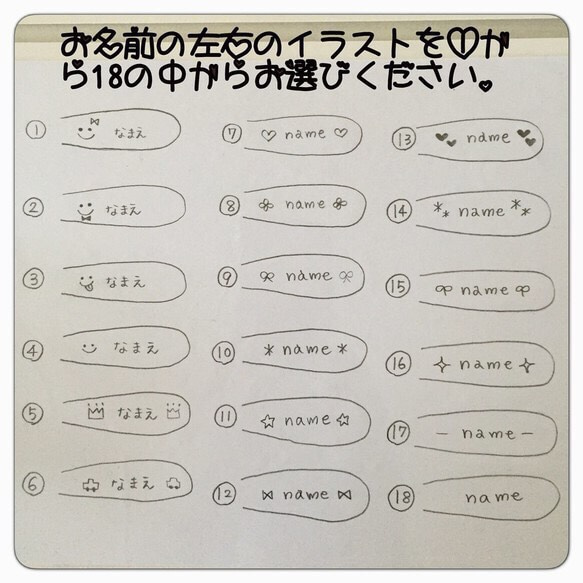 お名前の左右のイラストを①か
ら18の中からお選びください。
① なまえ
② なまえ
③ なまえ
④ なまえ
⑤ なまえ
⑥ なまえ
⑦ name
⑧ name
⑨ name
⑩ name
⑪ name
⑫ name
⑬ name
⑭ name
⑮ name
⑯ name
⑰ name
⑱ name